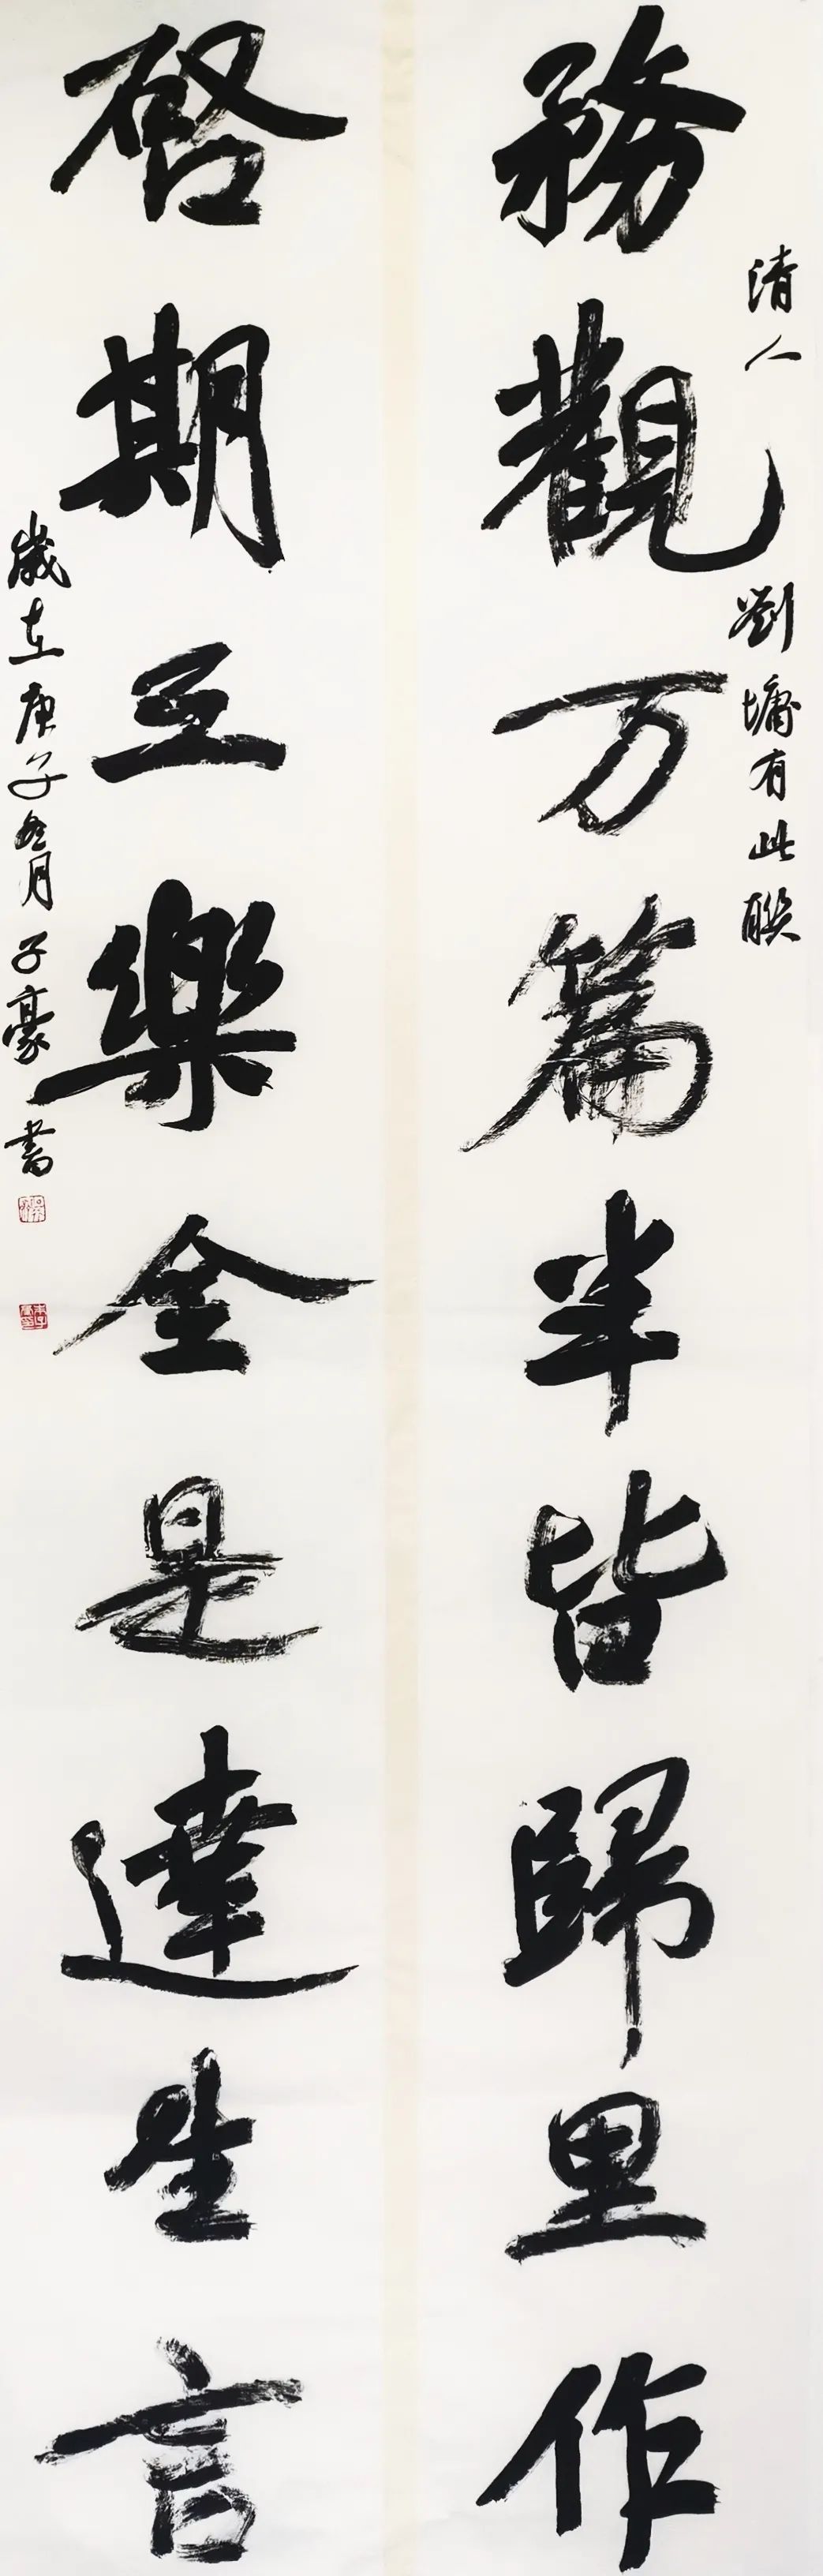 務觀万篇半皆歸里作
清人劉墉有此聯
啓期三樂全是達生言
歲在庚子冬月子豪書